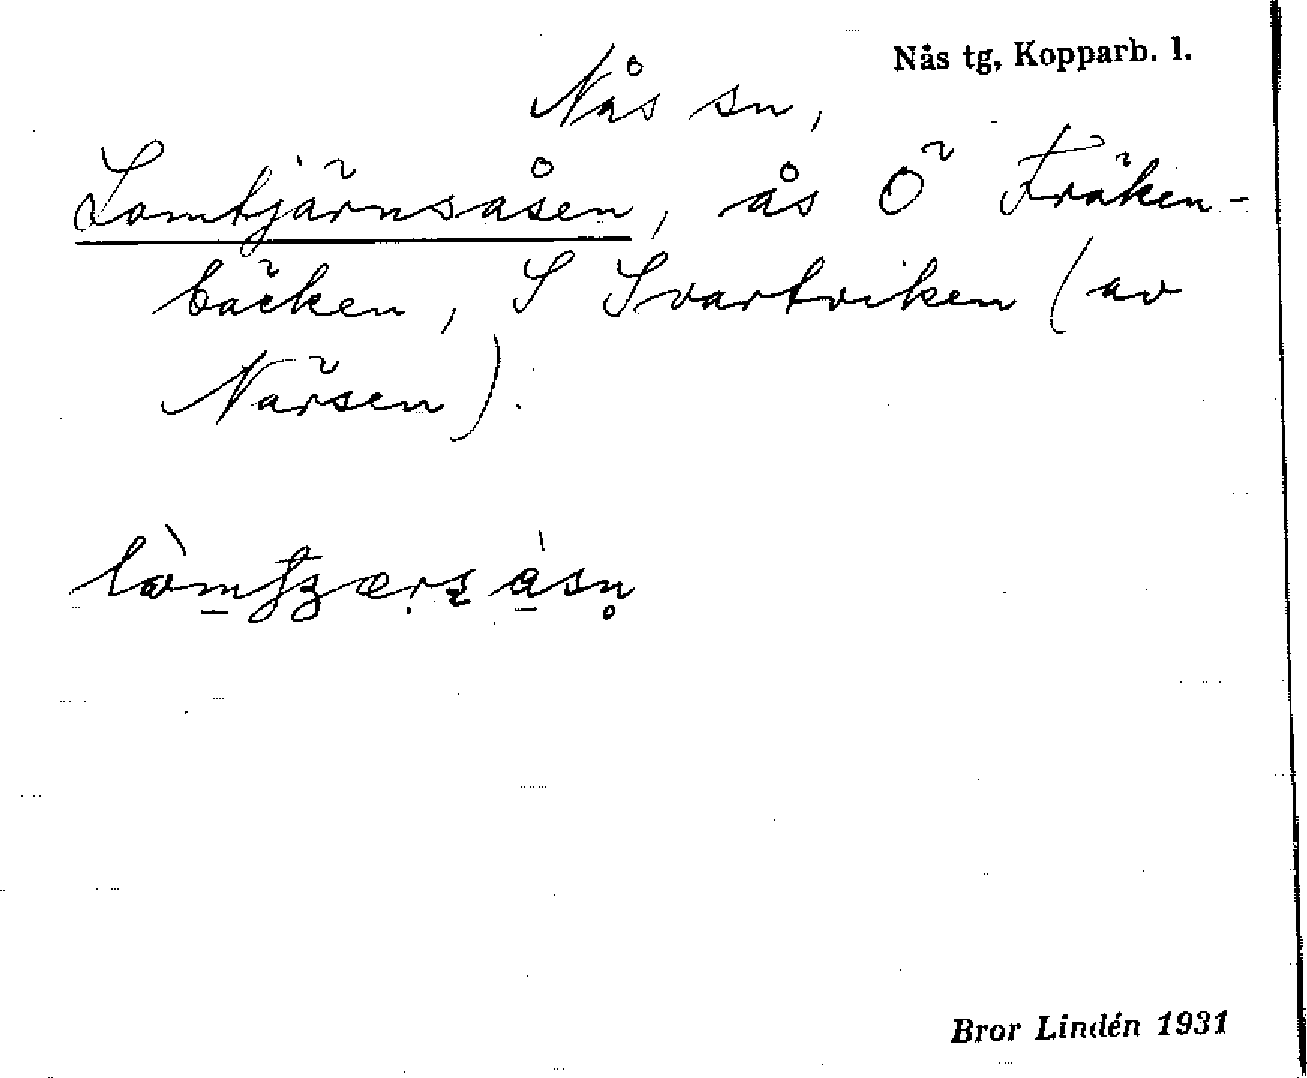 Nås tg, Kopparb. l.
Nås sn,
Lomtjärnsåsen, ås Ö Fräken-
bäcken, S Svartviken (av
Närsen).
Bror Lindén 1931